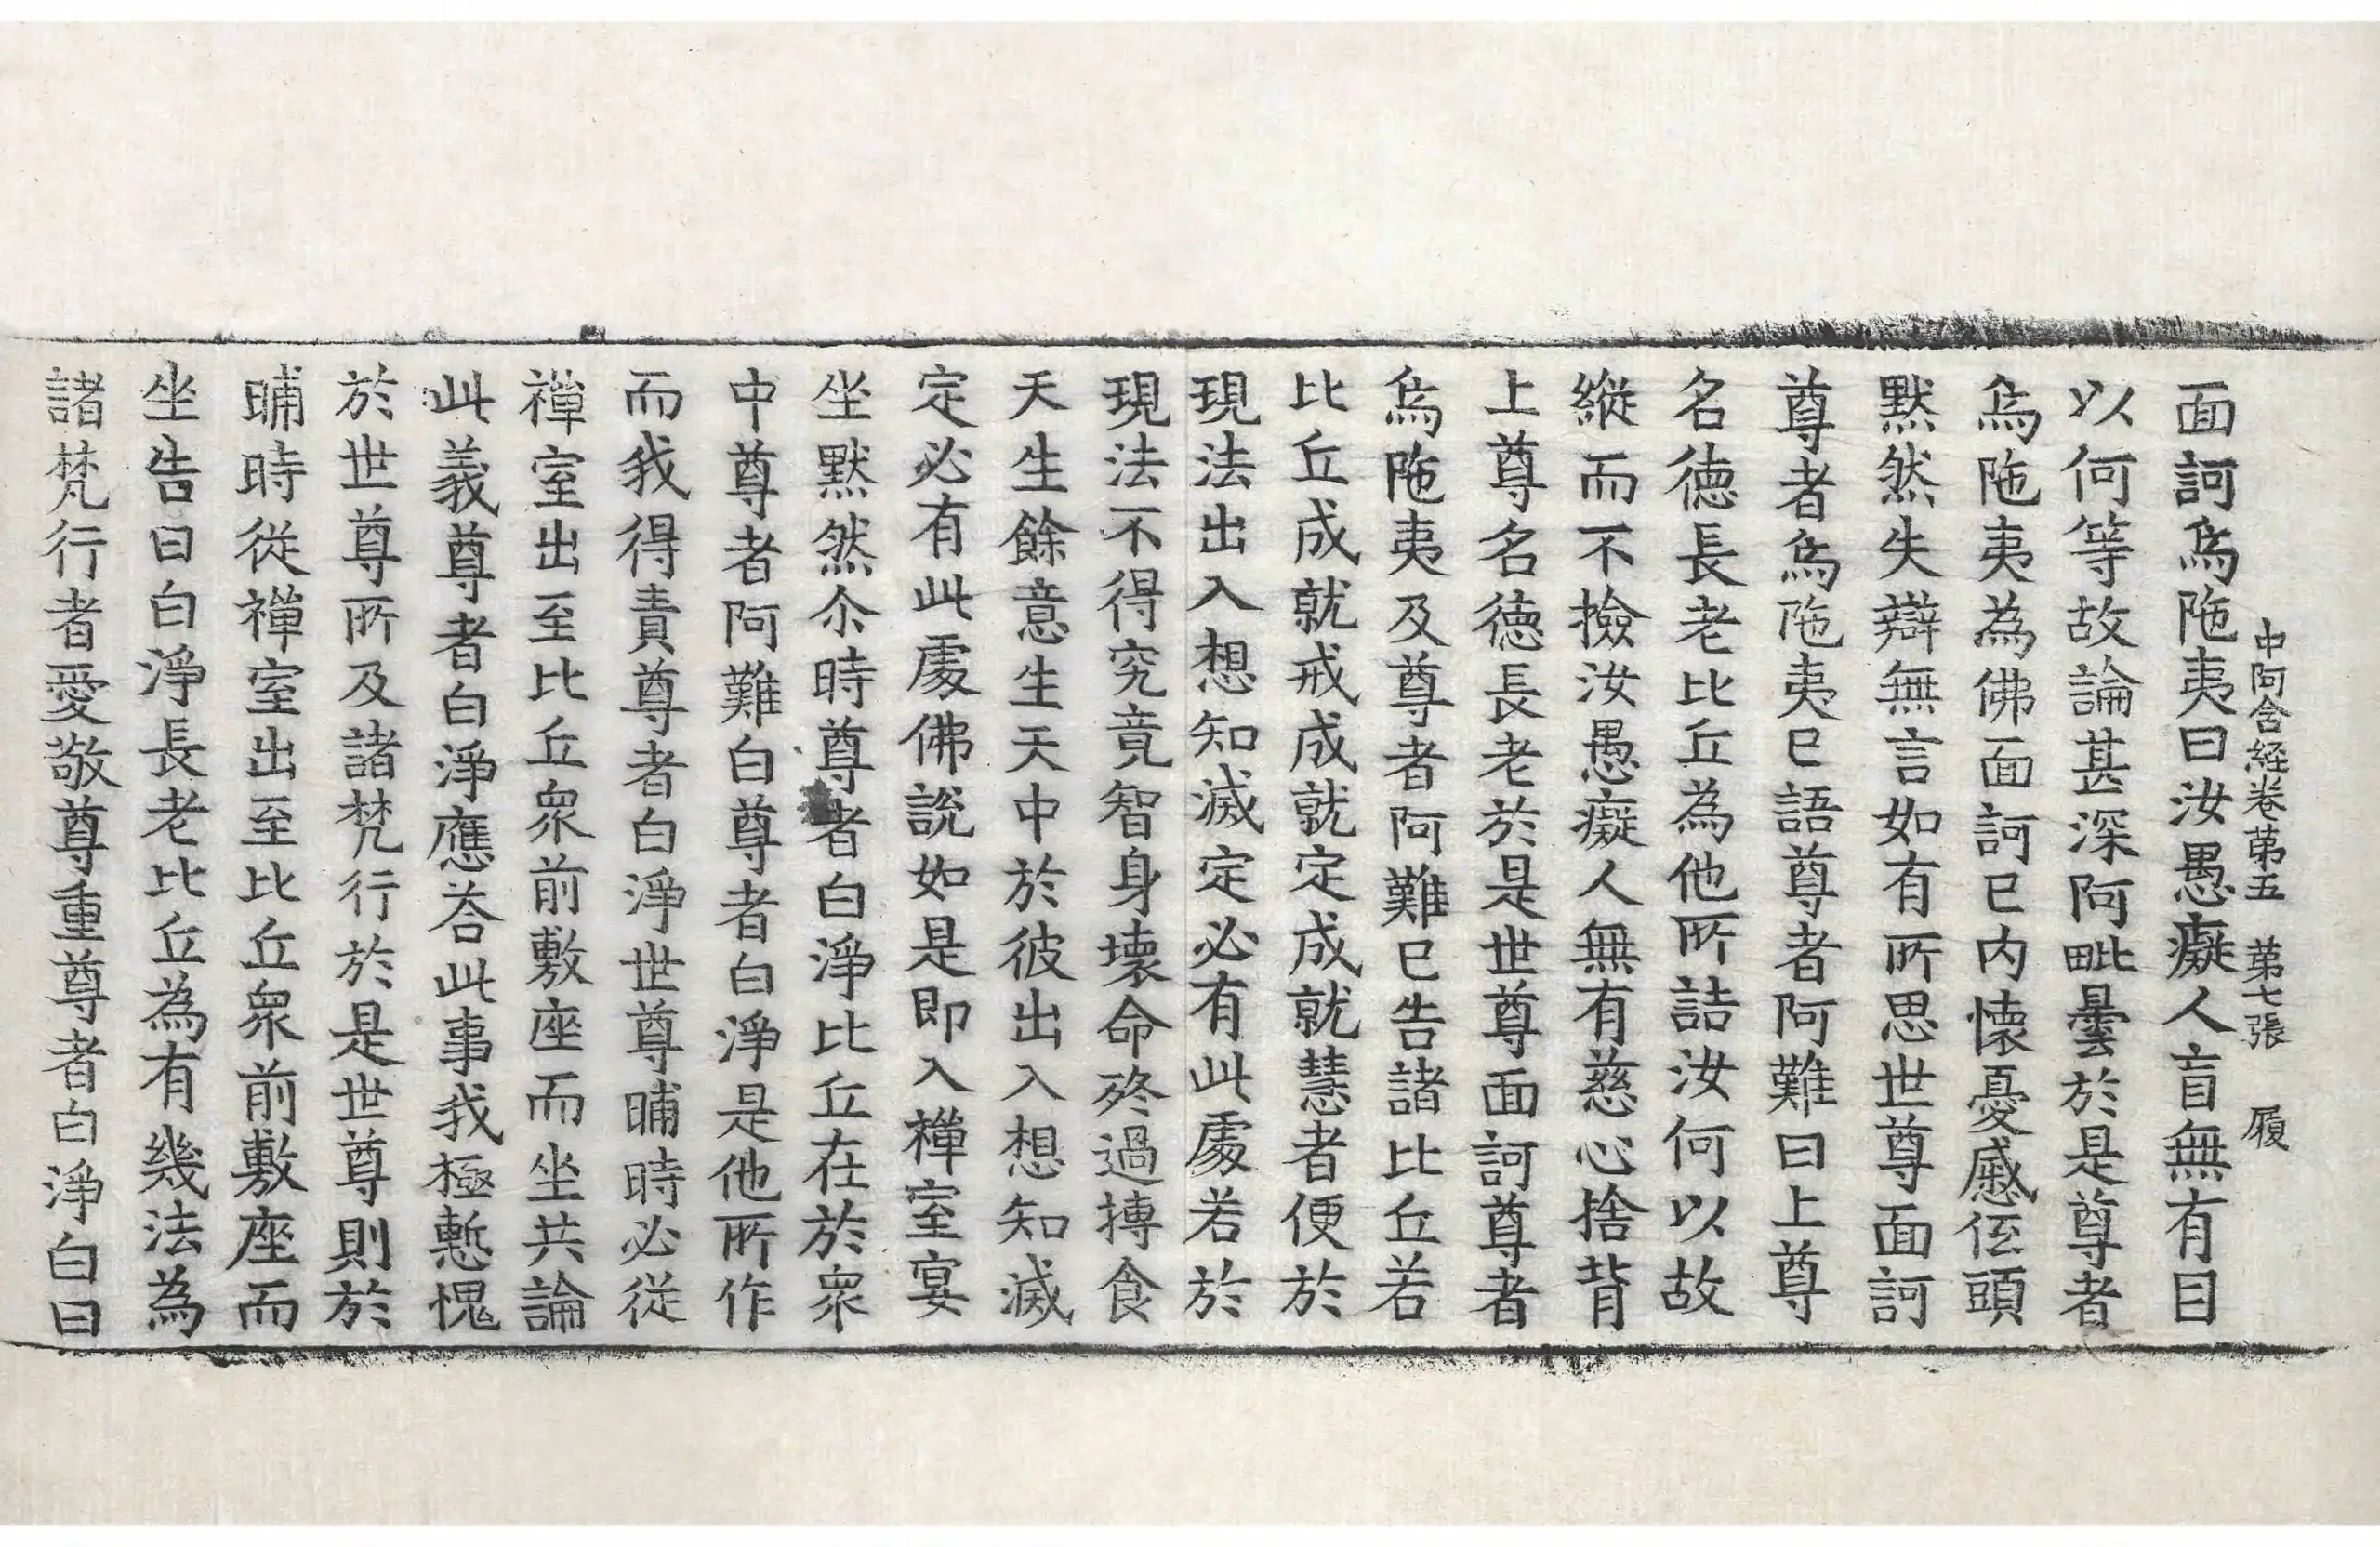 中阿含経卷苐五　苐七張　履
面訶烏陁夷曰汝愚癡人盲無有目
以何等故論甚深阿毗曇於是尊者
烏陁夷為佛面訶已内懷憂慼低頭
默然失辯無言如有所思世尊面訶
尊者烏陁夷已語尊者阿難曰上尊
名德長老比丘為他所詰汝何以故
縱而不撿汝愚癡人無有慈心捨背
上尊名德長老於是世尊面訶尊者
烏陁夷及尊者阿難已告諸比丘若
比丘成就戒成就定成就慧者便於
現法出入想知滅定必有此處若於
現法不得究竟智身壞命終過摶食
天生餘意生天中於彼出入想知滅
定必有此處佛說如是即入禪室宴
坐默然尒時尊者白淨比丘在於衆
中尊者阿難白尊者白淨是他所作
而我得責尊者白淨世尊晡時必從
禪室出至比丘衆前敷座而坐共論
此義尊者白淨應荅此事我極慙愧
於世尊所及諸梵行於是世尊則於
晡時從禪室出至比丘衆前敷座而
坐告曰白淨長老比丘為有幾法為
諸梵行者愛敬尊重尊者白淨白曰